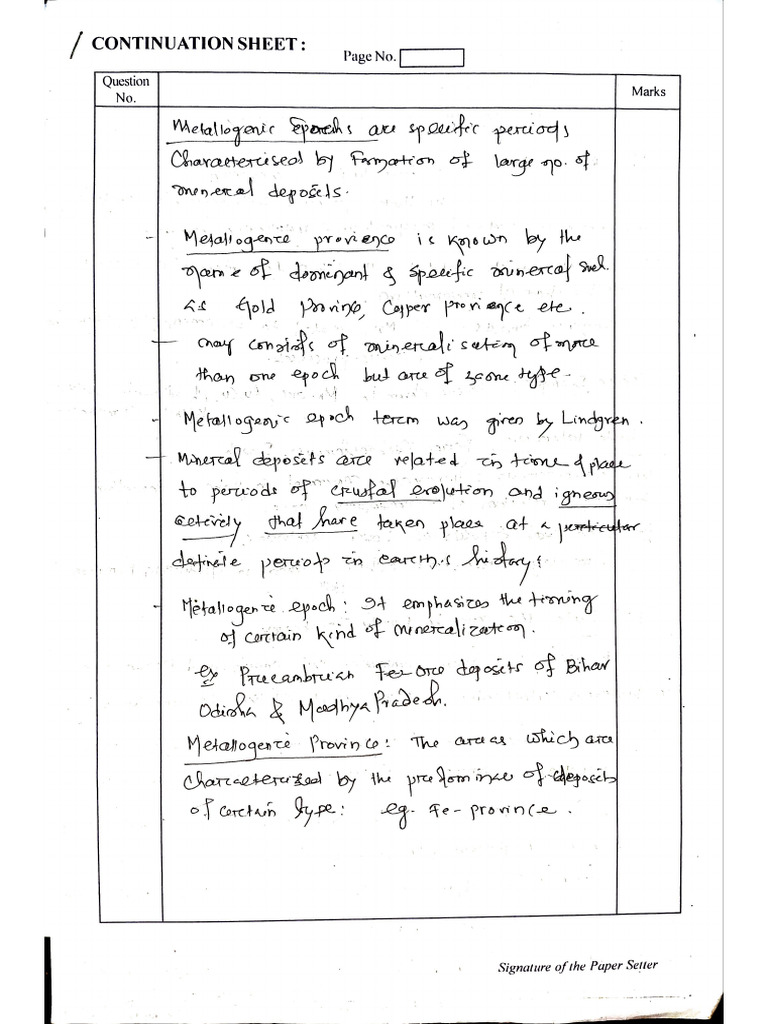 CONTINUATION SHEET :
Page No.
Question No.
Marks
Metallogenic Epochs are specific periods
Characterised by Formation of large no. of
mineral deposits.
- Metallogenic provience is known by the
name of dominant & specific mineral such
as Gold Province, Copper provience etc.
- may consists of mineralisation of more
than one epoch but are of same type.
- Metallogenic epoch term was given by Lindgren.
- Mineral deposits are related in time & place
to periods of crustal evolution and igneous
activity that have taken place at a particular
definite period in earth's history.
- Metallogenic epoch : It emphasizes the timing
of certain kind of mineralization.
ex Precambrian Fe-ore deposits of Bihar
Odisha & Madhya Pradesh.
Metallogenic Province : The areas which are
characterized by the predominance of deposits
of certain type : eg. Fe-province.
Signature of the Paper Setter